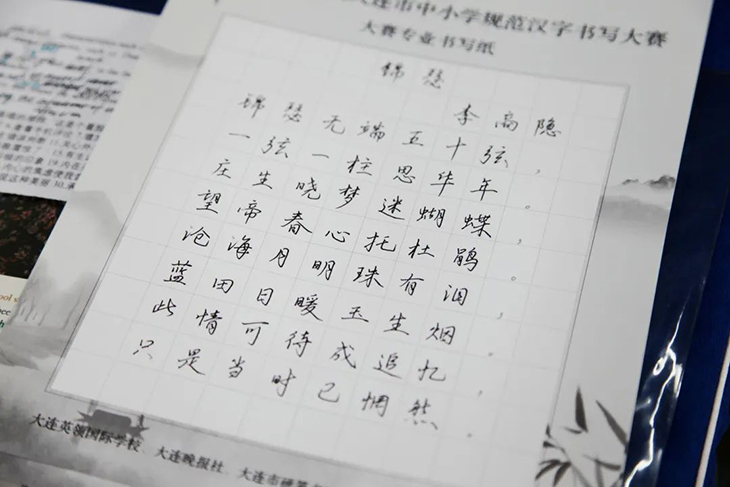 连市中小学规范汉字书写大赛
大赛专业书写纸
锦瑟
李商隐
锦瑟无端五十弦，
一弦一柱思华年。
庄生晓梦迷蝴蝶，
望帝春心托杜鹃。
沧海月明珠有泪，
蓝田日暖玉生烟。
此情可待成追忆，
只是当时已惘然。
大连英领国际学校、大连晚报社、大连市硬笔